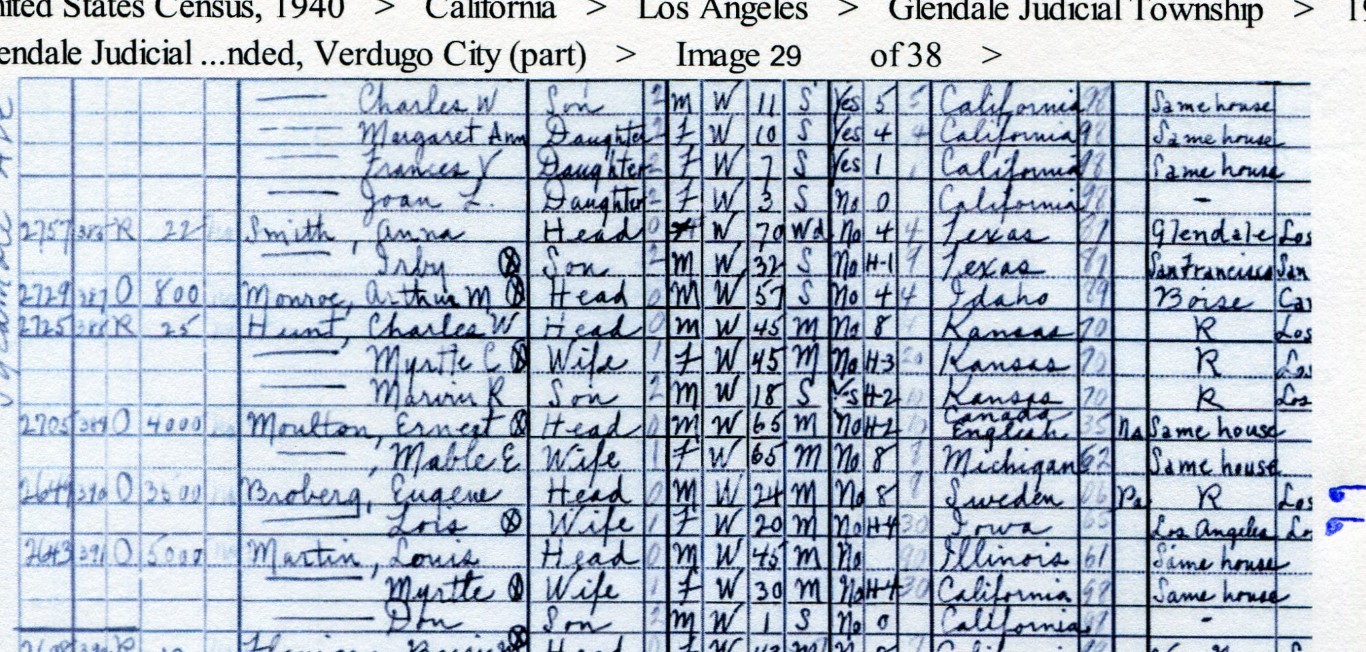 nited States Census, 1940 > California > Los Angeles > Glendale Judicial Township > 19
endale Judicial ...nded, Verdugo City (part) > Image 29 of 38 >
Charles W Son 2 M W 11 S Yes 5 5 California 98 Same house
Margaret Ann Daughter 2 F W 10 S Yes 4 4 California 98 Same house
Frances V Daughter 2 F W 7 S Yes 1 1 California 98 Same house
Joan L. Daughter 2 F W 3 S No 0 California 98 -
2757 R 22 Smith, Anna Head 0 W 70 Wd No 4 4 Texas 87 Glendale Los
Irby Son 2 M W 32 S No H-1 9 Texas 87 San Francisco San
2729 387 O 800 Monroe, Arthur M Head 0 M W 57 S No 4 4 Idaho 89 Boise
2725 388 R 25 Hunt, Charles W Head 0 M W 45 M No 8 Kansas 70 R Los
Myrtle C Wife 1 F W 45 M No H-3 Kansas 70 R Los
Marvin R Son 2 M W 18 S Yes H-2 Kansas 70 R Los
2705 389 O 4000 Moulton, Ernest Head 0 M W 65 M No H-2 Canada English 35 Na Same house
Mable E Wife 1 F W 65 M No 8 Michigan 62 Same house
390 O 3500 Broberg, Eugene Head 0 M W 24 M No 8 Sweden 06 Pa R Los
Lois Wife 1 F W 20 M No H-4 30 Iowa 65 Los Angeles Lo
2643 391 O 5000 Martin, Louis Head 0 M W 45 M No 90 Illinois 61 Same house
Myrtle Wife 1 F W 30 M No H-4 30 California 98 Same house
Don Son 2 M W 1 S No 0 California -
Head